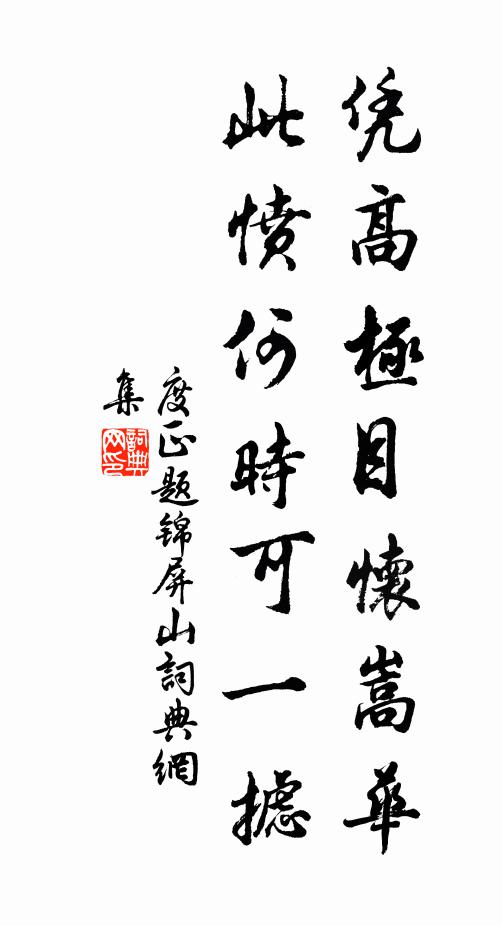 凭高極目懷嵩華
此憤何時可一攄
度正題锦屏山詞典網
集
詞典
网印